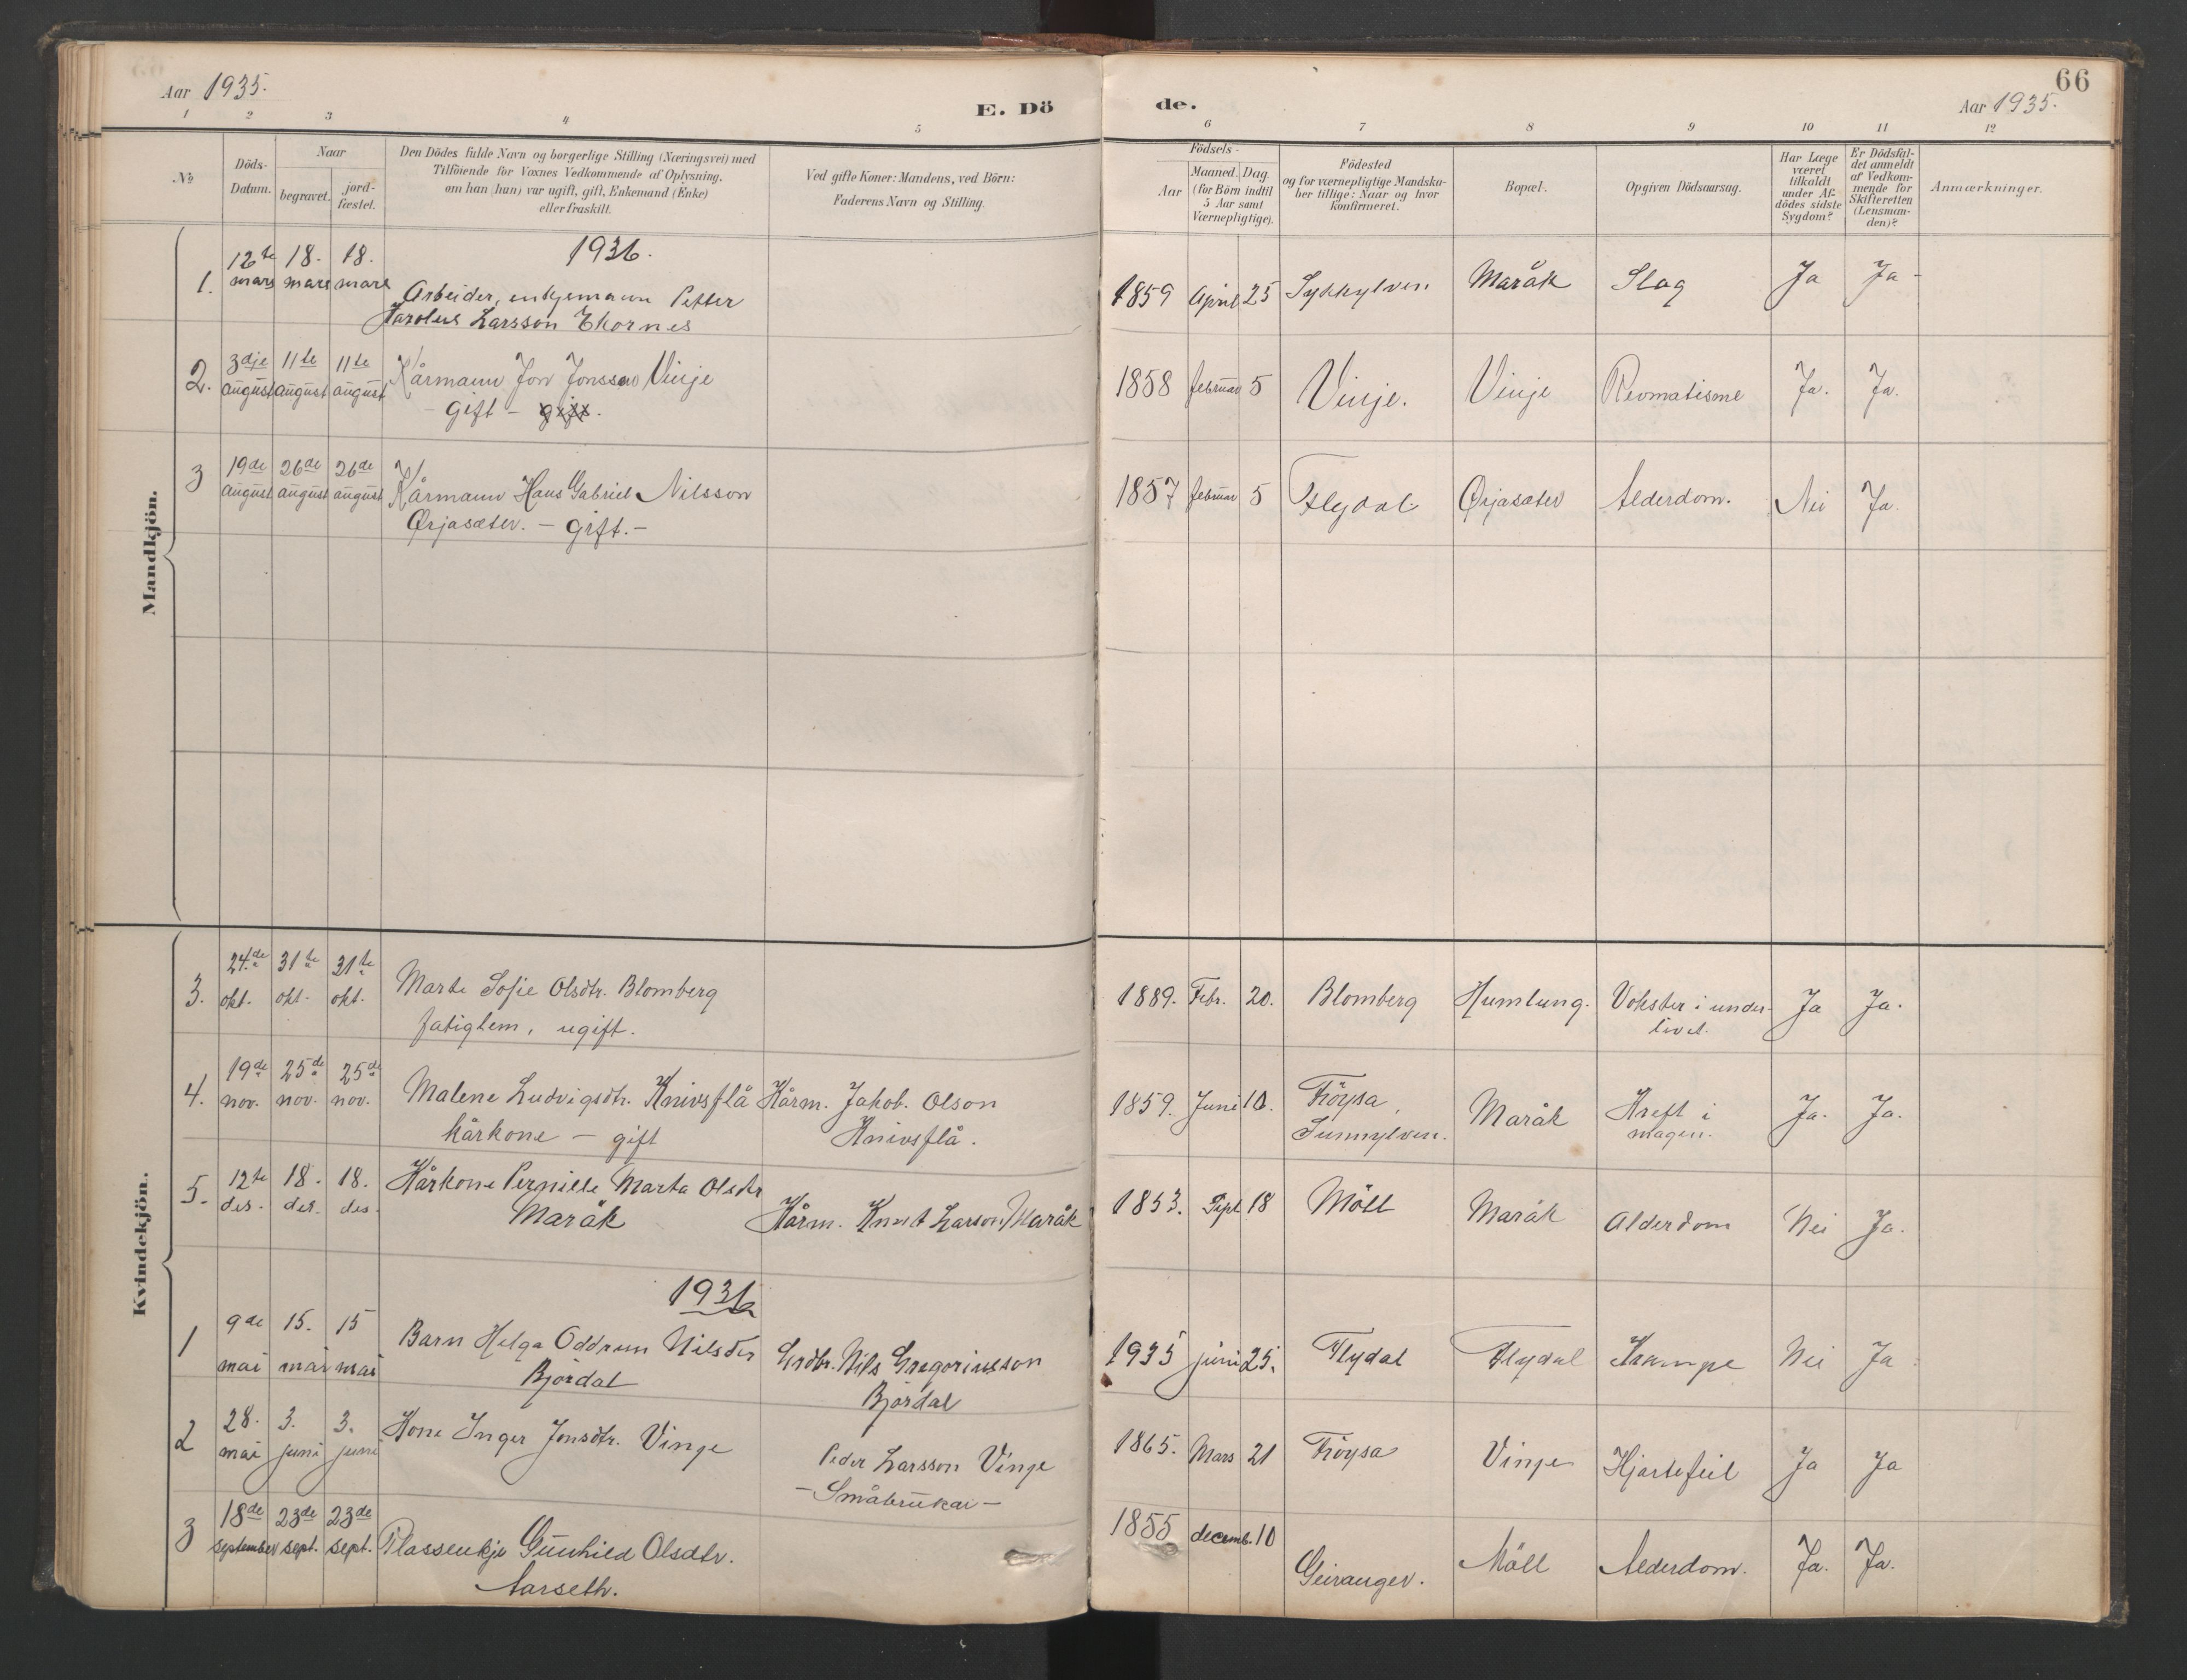 Aar 1935.
E. Dö
de.
66
Aar 1935.
1 2 3 4 5 6 7 8 9 10 11 12
№
Döds-
Datum.
Naar
begravet.
jord-
fæstet.
Den Dödes fulde Navn og borgerlige Stilling (Næringsvei) med
Tilföiende for Voxnes Vedkommende af Oplysning,
om han (hun) var ugift, gift, Enkemand (Enke)
eller fraskilt.
Ved gifte Koner: Mandens, ved Börn:
Faderens Navn og Stilling.
Födsels-
Aar
Maaned. Dag.
(for Börn indtil
5 Aar samt
Værnepligtige).
Födested
og for værnepligtige Mandska-
ber tillige: Naar og hvor
konfirmeret.
Bopæl.
Opgiven Dödsaarsag.
Har Læge
været
tilkaldt
under Af-
dödes sidste
Sygdom?
Er Dödsfal-
det anmeldt
af Vedkom-
mende for
Skifteretten
(Lensman-
den)?
Anmærkninger.
Mandkjön.
1936.
1. 12te mars 18. mars 18. mars Arbeider, enkjemann Petter
Karolus Larsson Ekornes
1859 April 25 Sykkylven Maråk Slag Ja Ja -
2. 3dje august 11te august 11te august Kårmann Jon Jonsson Vinje
- gift - gift.
1858 februar 5 Vinje. Vinje Revmatisme Ja. Ja.
3 19de august 26de august 26de august Kårmann Hans Gabriel Nilsson
Ørjasæter. - gift. -
1857 februar 5 Flydal Ørjasæter Alderdom. Nei Ja.
Kvindekjön.
3. 24de okt. 31te okt. 31te okt. Marte Sofie Olsdtr. Blomberg
fatiglem, ugift.
1889. Febr. 20. Blomberg Humlung. Vokster i under-
livet. Ja Ja.
4. 19de nov. 25de nov. 25de nov. Malene Ludvigsdtr. Knivsflå
kårkone - gift
Kårm. Jakob Olson
Knivsflå.
1859. Juni 10. Frøysa,
Sunnylven. Maråk Kreft i
magen. Ja. Ja.
5. 12te des. 18. des. 18. des. Kårkone Pernille Marta Olsdtr
Maråk
Kårm. Knut Larson Maråk
1853. Sept 18 Möll Maråk Alderdom Nei Ja.
1936
1 9de mai 15. mai 15 mai Barn Helga Oddrun Nilsdtr
Bjørdal
Grdbr. Nils Gregoriusson
Bjørdal
1935 juni 25. Flydal Flydal Krampe Nei Ja
2 28. mai 3. juni 3. juni Kone Inger Jonsdtr. Vinje
Peder Larsson Vinje
- Småbrukar -
1865. Mars 21 Frøysa Vinje Hjartefeil Ja Ja
3 18de september 23de sept. 23de sept. Plassenkje Gunhild Olsdtr.
Aarseth.
1855 decemb. 10 Geiranger. Möll Alderdom. Ja. Ja.